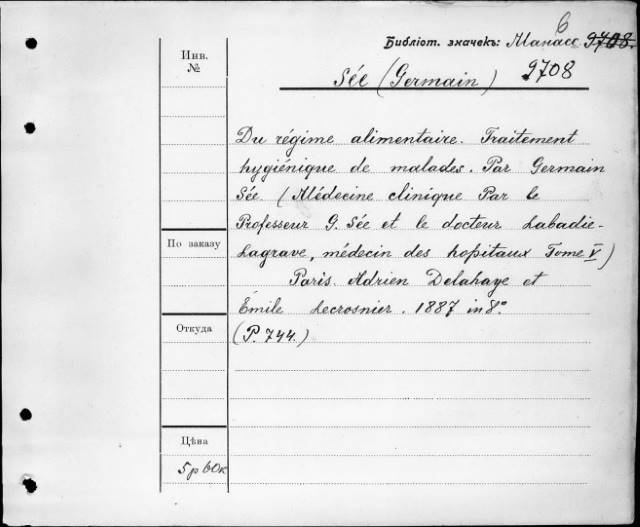 6
Библіот. значекъ: Манасс 9708.
Инв.
№
Sée (Germain) 9708
Du régime alimentaire. Traitement
hygiénique de malades. Par Germain
Sée. (Médecine clinique Par le
Professeur G. Sée et le docteur Labadie-
По заказу
Lagrave, médecin des hopitaux Tome V)
Paris. Adrien Delahaye et
Émile Lecrosnier. 1887 in 8°.
Откуда
(P. 744.)
Цѣна
5 р 60 к